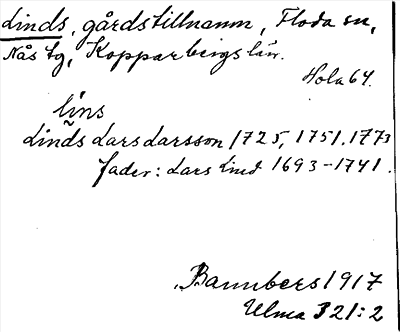 Linds, gårdstillnamn, Floda sn,
Nås tg, Kopparbergs län.
Hola 64.
līns
Linds Lars Larsson 1725, 1751, 1773
fader: Lars Lind 1693-1741.
Bannbers 1917
Ulma 321:2